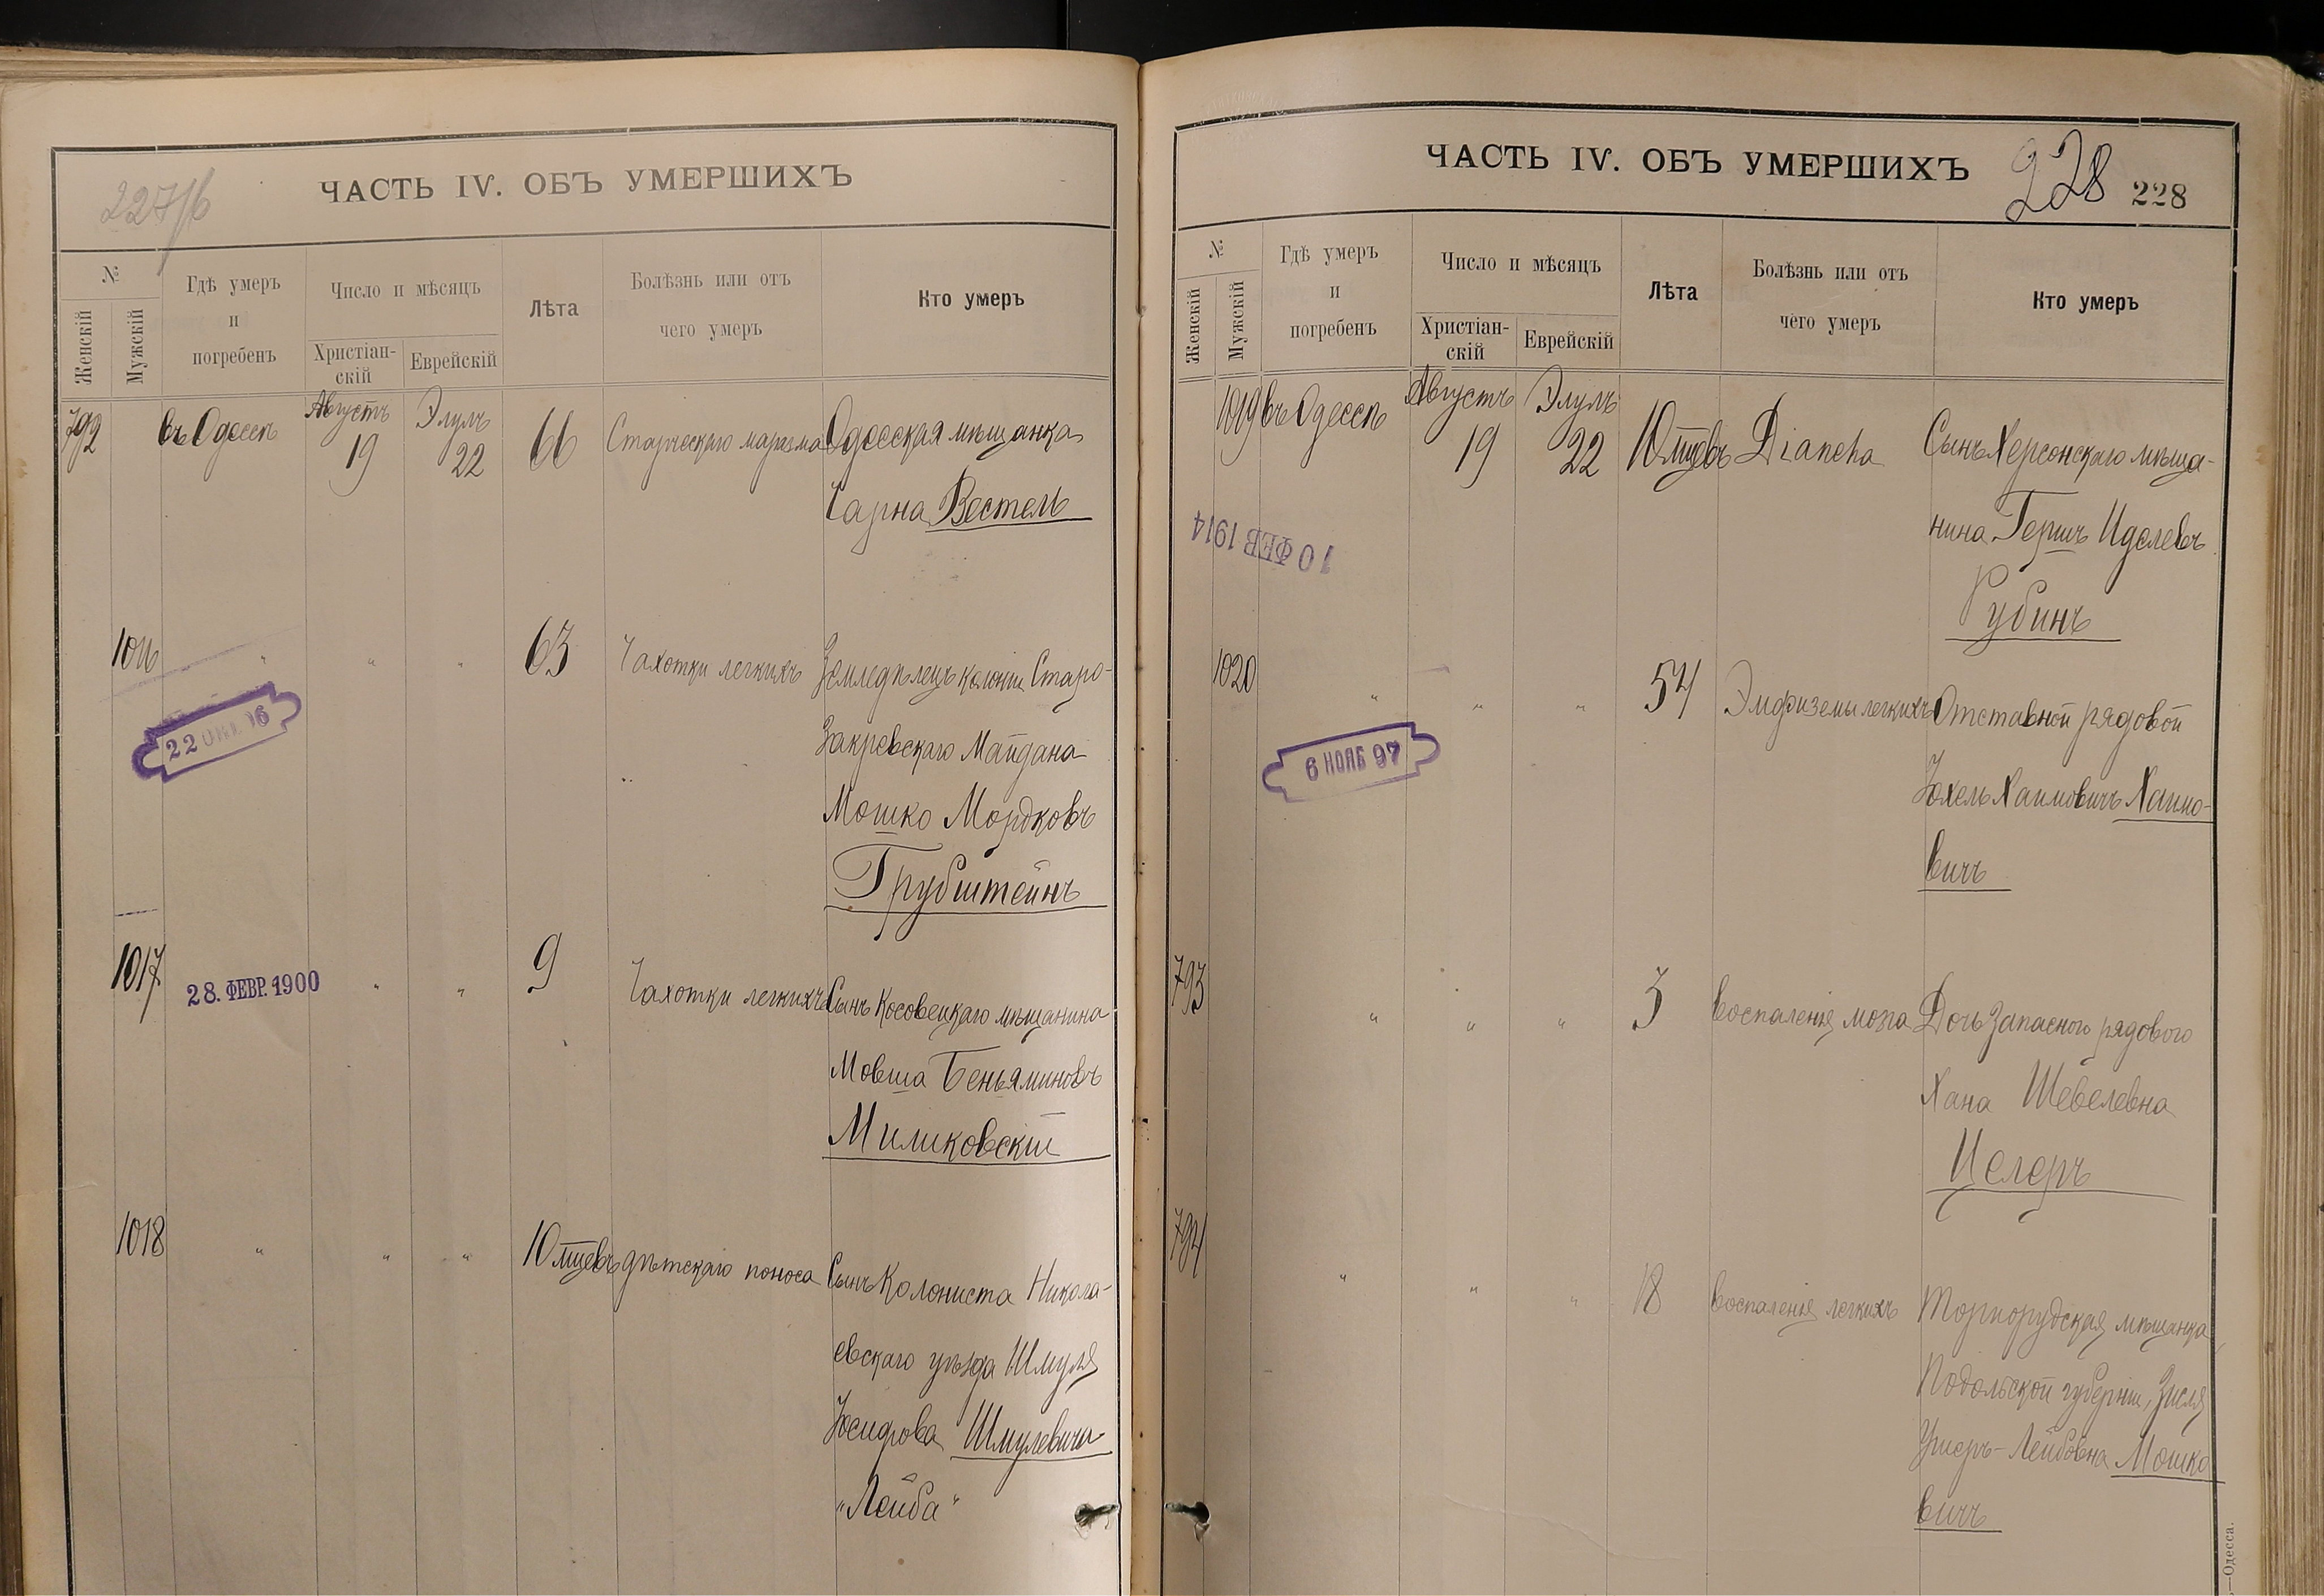 227/б
ЧАСТЬ IV. ОБЪ УМЕРШИХЪ
№
Женскій
Мужскій
Гдѣ умеръ
и
погребенъ
Число и мѣсяцъ
Христіан-
скій
Еврейскій
Лѣта
Болѣзнь или отъ
чего умеръ
Кто умеръ
792
въ Одессѣ
Августъ
19
Элулъ
22
66
Старческаго маразма
Одесская мѣщанка
Чарна Вестель
1016
"
"
"
63
Чахотки легкихъ
Земледѣлецъ колоніи Старо-
Закревскаго Майдана
Мошко Мордковъ
Грубштейнъ
22 ОКТ. 96
1017
28. ФЕВР. 1900
"
"
9
Чахотки легкихъ
Сынъ Косовецкаго мѣщанина
Мовша Беньяминовъ
Миликовскій
1018
"
"
"
10 мцевъ
дѣтскаго поноса
Сынъ Колониста Никола-
евскаго уѣзда Шмуля
Юсифова Шмулевича
"Лейба"
ЧАСТЬ IV. ОБЪ УМЕРШИХЪ
228
228
№
Женскій
Мужскій
Гдѣ умеръ
и
погребенъ
Число и мѣсяцъ
Христіан-
скій
Еврейскій
Лѣта
Болѣзнь или отъ
чего умеръ
Кто умеръ
1019
въ Одессѣ
Августъ
19
Элулъ
22
10 мцевъ
Dianeha
Сынъ Херсонскаго мѣща-
нина Гершъ Иделевъ
Рубинъ
10 ФЕВ 1914
1020
"
"
"
54
Эмфиземы легкихъ
Отставной рядовой
Юхель Хаимовичъ Хаимо-
вичъ
6 НОЯБ 97
793
"
"
"
3
воспаленія мозга
Дочь запаснаго рядового
Хана Шевелевна
Целеръ
794
"
"
"
18
воспаленія легкихъ
мѣщанка
Подольской губерніи, Зисля
Ушеръ-Лейбовна Мошко
вичъ
—Одесса.